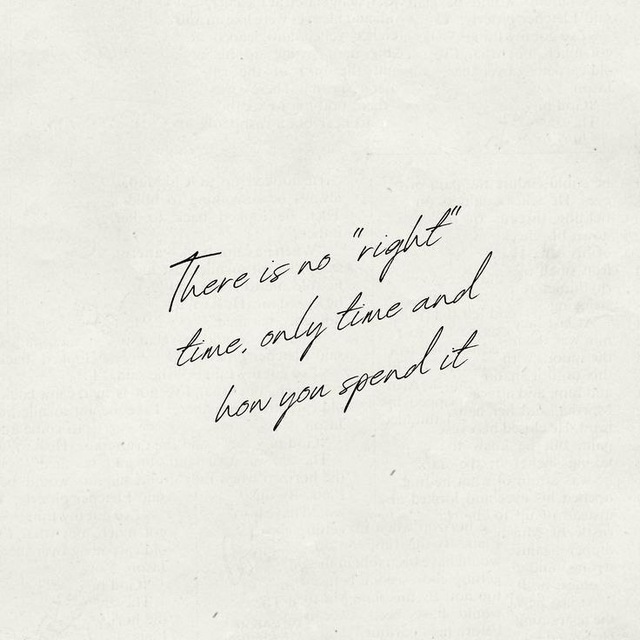 There is no "right"
time, only time and
how you spend it